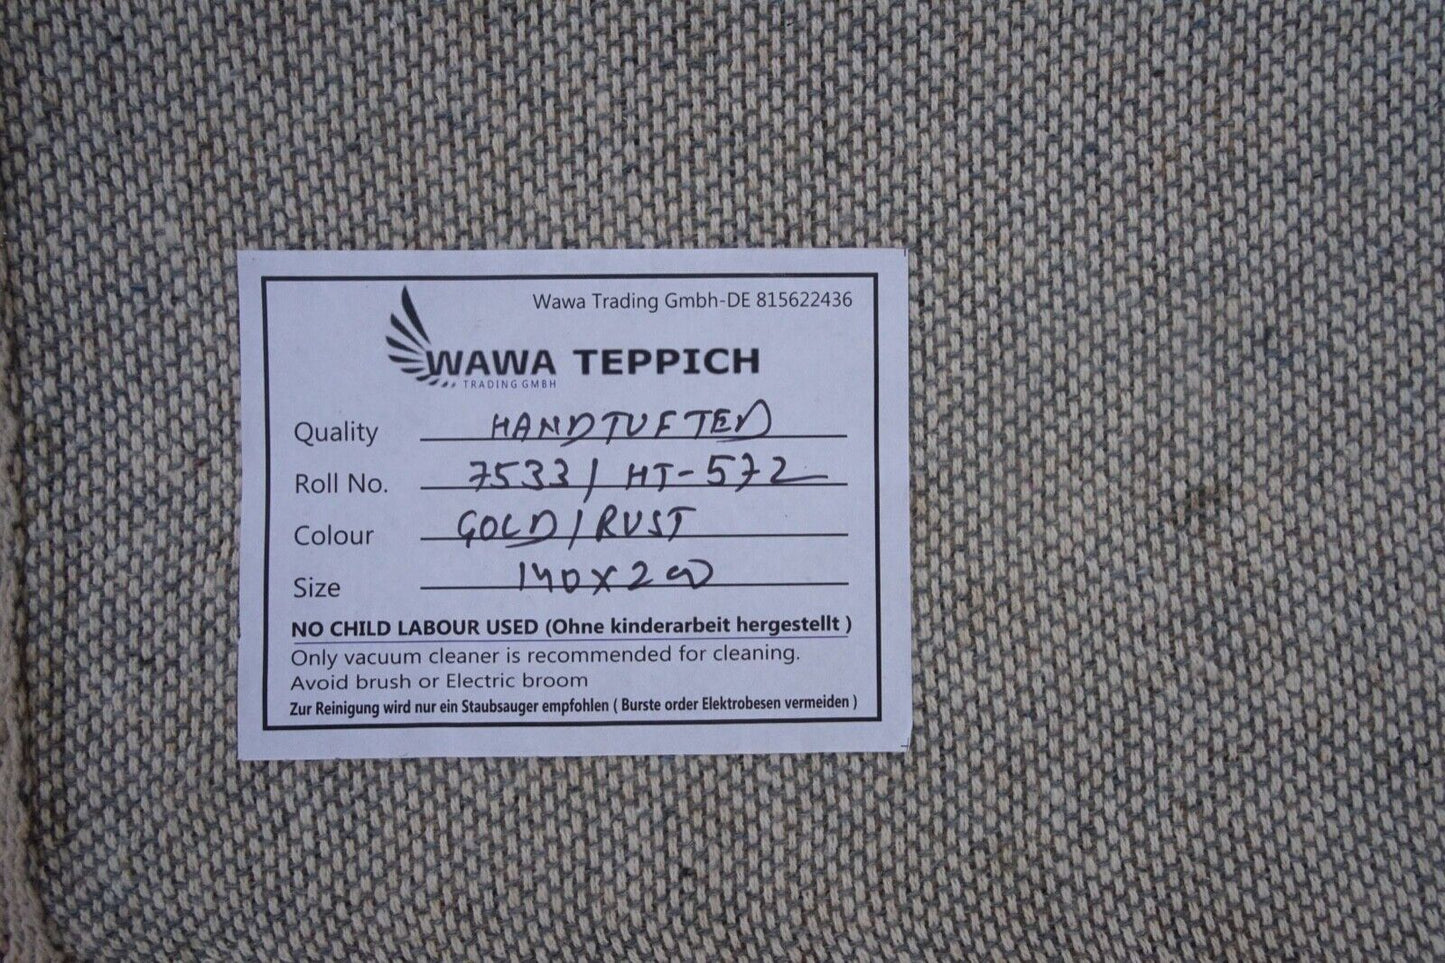 Wawa Trading Gmbh-DE 815622436
WAWA TEPPICH
TRADING GMBH
Quality HANDTUFTED
Roll No. 7533/ HT-572
Colour GOLD/RUST
Size 140x200
NO CHILD LABOUR USED (Ohne kinderarbeit hergestellt )
Only vacuum cleaner is recommended for cleaning.
Avoid brush or Electric broom
Zur Reinigung wird nur ein Staubsauger empfohlen ( Burste order Elektrobesen vermeiden )